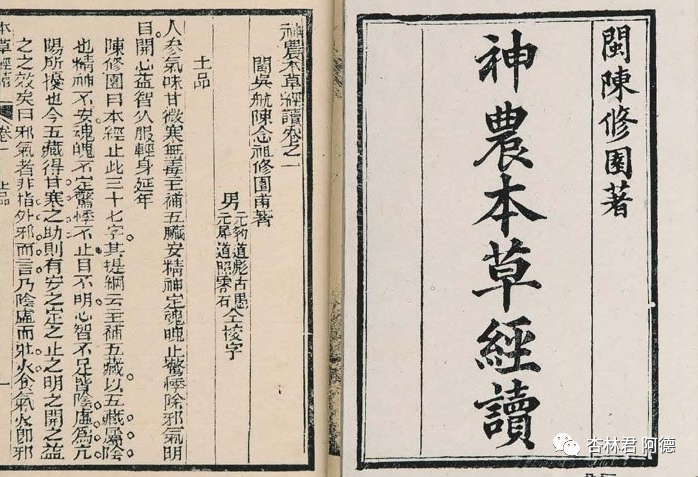 閩陳修園著
神農本草經讀
神農本草經讀卷之一
閩吳航陳念祖修園甫著
男 元豹道彪古愚
元犀道照靈石 仝校字
上品
人參氣味甘微寒無毒主補五臟安精神定魂魄止驚悸除邪氣明
目開心益智久服輕身延年
陳修園曰本經止此三十七字其提綱云主補五藏以五藏屬陰
也精神不安魂魄不定驚悸不止目不明心智不足皆陰虛爲亢
陽所擾也今五藏得甘寒之助則有安之定之止之明之開之益
之之效矣曰邪氣者非指外邪而言乃陰虛而壯火食氣火即邪
本草經讀 卷一 上品 一
杏林君 阿德